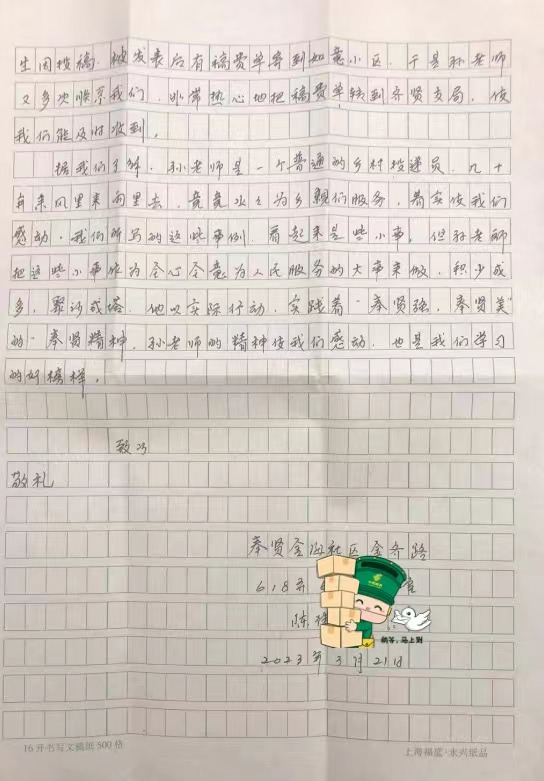 生因投稿,被发表后有稿费单寄到如意小区,于是孙老师
又多次联系我们,非常热心地把稿费单转到齐贤支局,使
我们能及时收到。
据我们了解,孙老师是一个普通的乡村投递员,几十
年来风里来雨里去,兢兢业业为乡亲们服务,着实使我们
感动。我们所写的这些事例,看起来是些小事,但孙老师
把这些小事作为全心全意为人民服务的大事来做,积少成
多,聚沙成塔。他以实际行动,实践着“奉贤强,奉贤美”
的“奉贤精神,孙老师的精神使我们感动,也是我们学习
的好榜样。
致以
敬礼
奉贤金海社区金齐路
618弄
陈
稍等,马上到
2023年3月21日
16开书写文稿纸500格
上海福蓝·永兴纸品